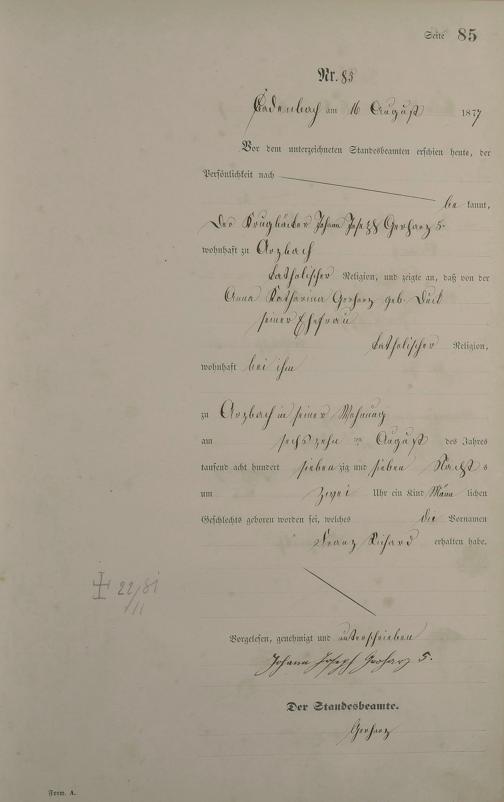 Seite 85
Nr. 83
Cadenbach am 16 August 1877
Vor dem unterzeichneten Standesbeamten erschien heute, der
Persönlichkeit nach
be kannt,
der Krugbäcker Johann Joseph Gerharz 5.
wohnhaft zu Arzbach
katholischer Religion, und zeigte an, daß von der
Anna Katharina Gerharz geb.
seiner Ehefrau
katholischer Religion,
wohnhaft bei ihm
zu Arzbach in seiner Wohnung
am sechszehn ten August des Jahres
tausend acht hundert sieben zig und sieben Nacht s
um zwei Uhr ein Kind männ lichen
Geschlechts geboren worden sei, welches die Vornamen
Franz Richard erhalten habe.
22/81
11
Vorgelesen, genehmigt und unterschrieben
Johann Joseph Gerharz 5.
Der Standesbeamte.
Gerharz
Form. A.